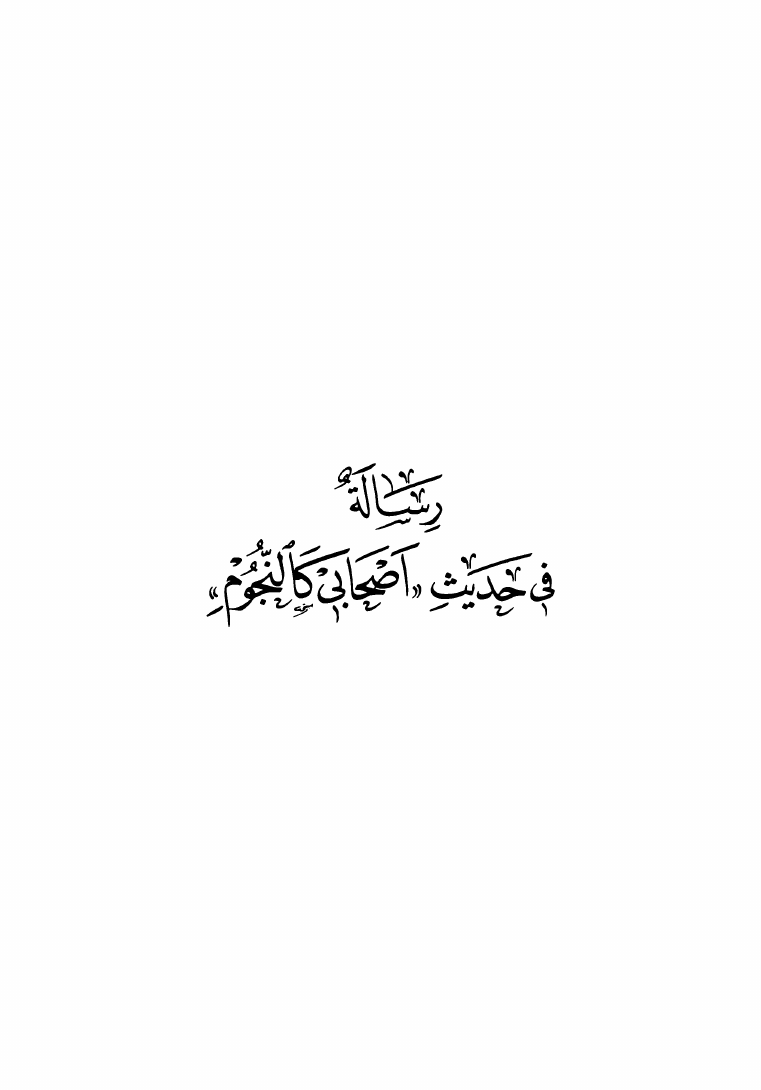 رِسَالَةٌ
فِي حَدِيثِ «أَصْحَابِي كَالنُّجُومِ»